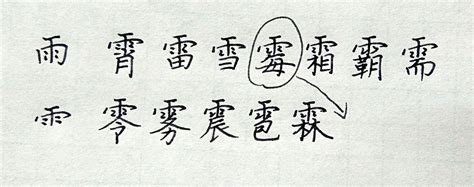 雨 霄 雷 雪 霉 霜 霸 需
⻗ 零 雾 震 雹 霖